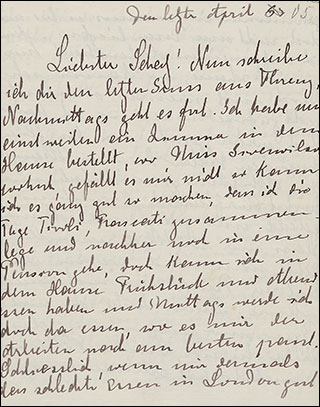 den letzte April 05
Liebster Schatz! Nun schreibe
ich dir den letzten Gruss aus Florenz,
Nachmittags geht es fort. Ich habe mir
einstweilen ein Zimmer in dem
Hause bestellt, wo Miss
wohnt, gefällt es mir nicht so kann
ich es ganz gut so machen, dass ich die
Tage Tivoli, Frascati zusammen
lege und nachher noch in eine
Pension gehe, doch kann ich in
dem Hause Frühstück und Abend
essen haben und Mittags werde ich
doch da essen, wo es mir der
Arbeiten nach am besten passt.
Schliesslich, wenn mir damals
das schlechte Essen in London gut